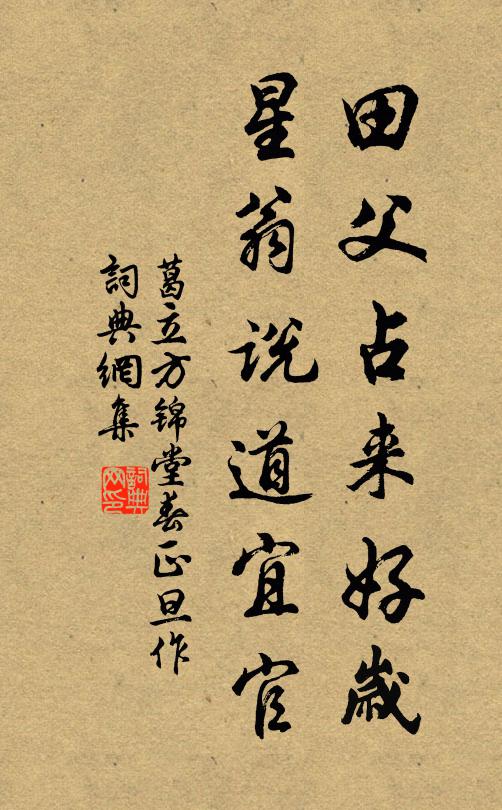 田父占来好歲
星翁説道宜官
葛立方锦堂春正旦作
詞典網集
詞典網印